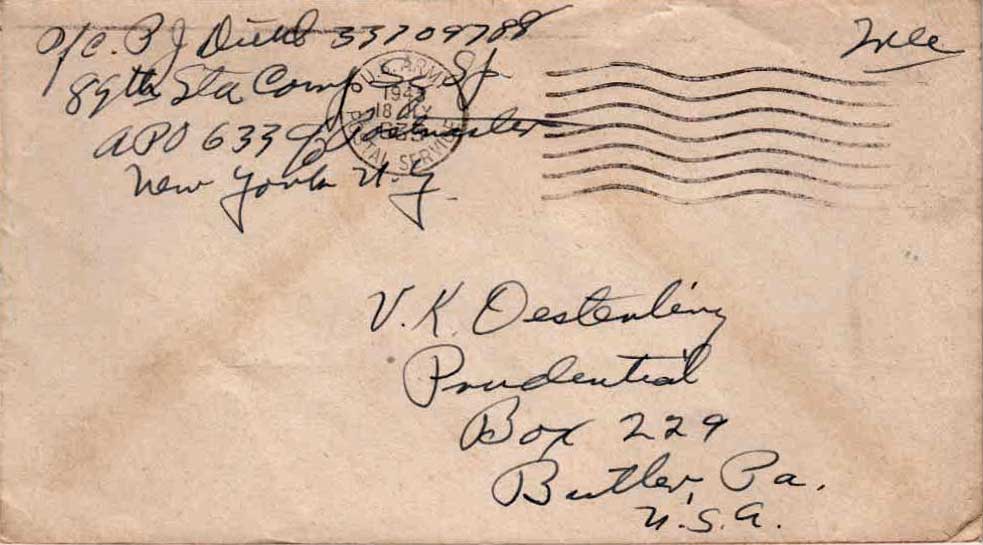 Pfc. P J 33709788
Free
89th Sta Comp Sq Sp
APO 633 c/o Postmaster
New York N.Y.
U.S. ARMY
POSTAL SERVICE
V.K. Oesterling
Prudential
Box 229
Butler, Pa.
U.S.A.